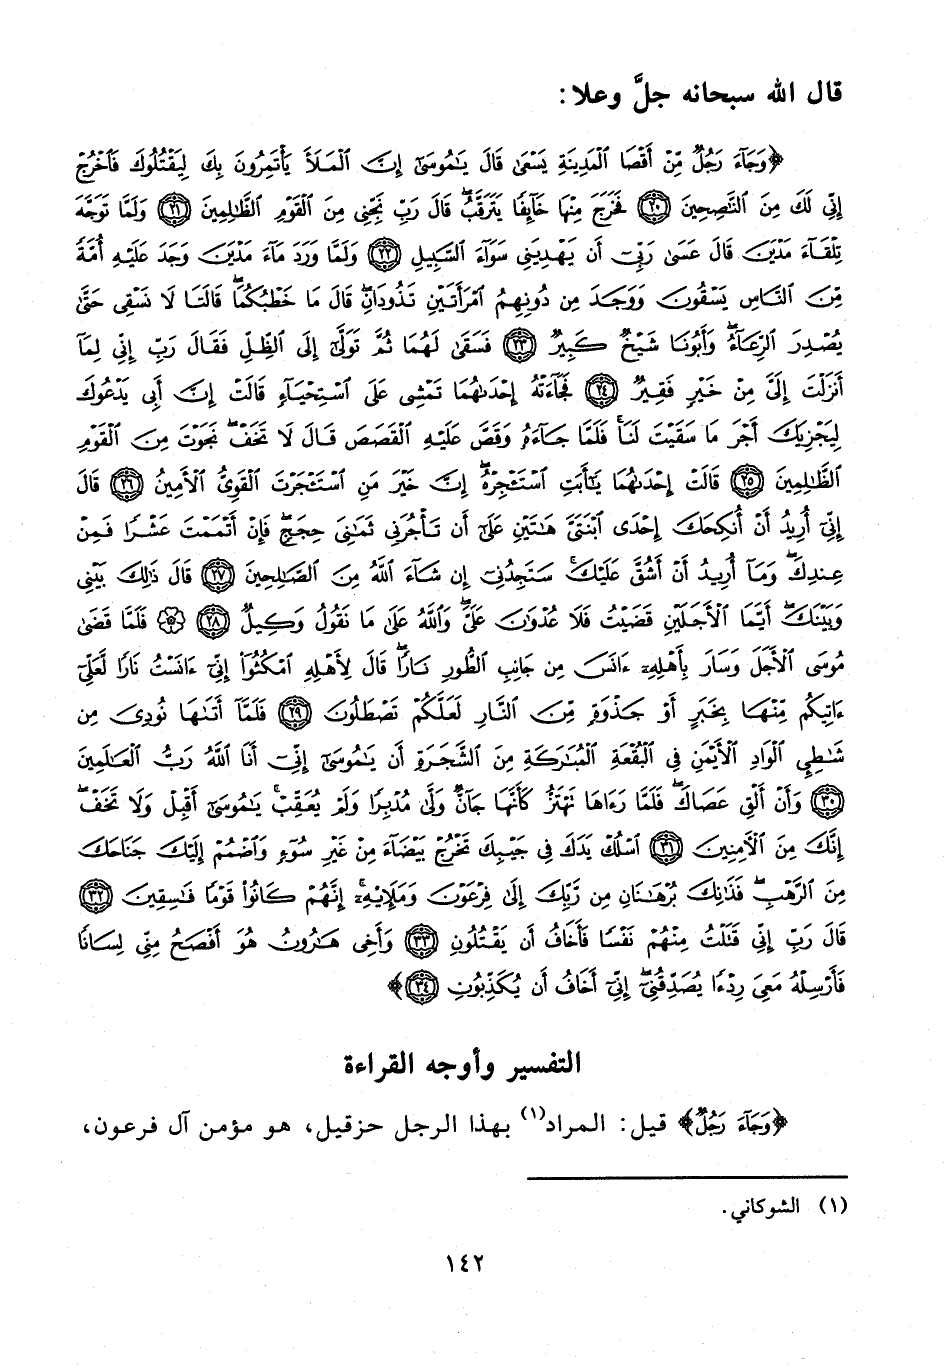 قال الله سبحانه جلَّ وعلا:
﴿وَجَآءَ رَجُلٌ مِّنْ أَقْصَا ٱلْمَدِينَةِ يَسْعَىٰ قَالَ يَٰمُوسَىٰٓ إِنَّ ٱلْمَلَأَ يَأْتَمِرُونَ بِكَ لِيَقْتُلُوكَ فَٱخْرُجْ
إِنِّى لَكَ مِنَ ٱلنَّٰصِحِينَ ﴿٢٠﴾ فَخَرَجَ مِنْهَا خَآئِفًا يَتَرَقَّبُۖ قَالَ رَبِّ نَجِّنِى مِنَ ٱلْقَوْمِ ٱلظَّٰلِمِينَ ﴿٢١﴾ وَلَمَّا تَوَجَّهَ
تِلْقَآءَ مَدْيَنَ قَالَ عَسَىٰ رَبِّىٓ أَن يَهْدِيَنِى سَوَآءَ ٱلسَّبِيلِ ﴿٢٢﴾ وَلَمَّا وَرَدَ مَآءَ مَدْيَنَ وَجَدَ عَلَيْهِ أُمَّةً
مِّنَ ٱلنَّاسِ يَسْقُونَ وَوَجَدَ مِن دُونِهِمُ ٱمْرَأَتَيْنِ تَذُودَانِۖ قَالَ مَا خَطْبُكُمَاۖ قَالَتَا لَا نَسْقِى حَتَّىٰ
يُصْدِرَ ٱلرِّعَآءُۖ وَأَبُونَا شَيْخٌ كَبِيرٌ ﴿٢٣﴾ فَسَقَىٰ لَهُمَا ثُمَّ تَوَلَّىٰٓ إِلَى ٱلظِّلِّ فَقَالَ رَبِّ إِنِّى لِمَآ
أَنزَلْتَ إِلَىَّ مِنْ خَيْرٍ فَقِيرٌ ﴿٢٤﴾ فَجَآءَتْهُ إِحْدَىٰهُمَا تَمْشِى عَلَى ٱسْتِحْيَآءٍ قَالَتْ إِنَّ أَبِى يَدْعُوكَ
لِيَجْزِيَكَ أَجْرَ مَا سَقَيْتَ لَنَاۚ فَلَمَّا جَآءَهُۥ وَقَصَّ عَلَيْهِ ٱلْقَصَصَ قَالَ لَا تَخَفْۖ نَجَوْتَ مِنَ ٱلْقَوْمِ
ٱلظَّٰلِمِينَ ﴿٢٥﴾ قَالَتْ إِحْدَىٰهُمَا يَٰٓأَبَتِ ٱسْتَـْٔجِرْهُۖ إِنَّ خَيْرَ مَنِ ٱسْتَـْٔجَرْتَ ٱلْقَوِىُّ ٱلْأَمِينُ ﴿٢٦﴾ قَالَ
إِنِّىٓ أُرِيدُ أَنْ أُنكِحَكَ إِحْدَى ٱبْنَتَىَّ هَٰتَيْنِ عَلَىٰٓ أَن تَأْجُرَنِى ثَمَٰنِىَ حِجَجٍۖ فَإِنْ أَتْمَمْتَ عَشْرًا فَمِنْ
عِندِكَۖ وَمَآ أُرِيدُ أَنْ أَشُقَّ عَلَيْكَۚ سَتَجِدُنِىٓ إِن شَآءَ ٱللَّهُ مِنَ ٱلصَّٰلِحِينَ ﴿٢٧﴾ قَالَ ذَٰلِكَ بَيْنِى
وَبَيْنَكَۖ أَيَّمَا ٱلْأَجَلَيْنِ قَضَيْتُ فَلَا عُدْوَٰنَ عَلَىَّۖ وَٱللَّهُ عَلَىٰ مَا نَقُولُ وَكِيلٌ ﴿٢٨﴾ ۞ فَلَمَّا قَضَىٰ
مُوسَى ٱلْأَجَلَ وَسَارَ بِأَهْلِهِۦٓ ءَانَسَ مِن جَانِبِ ٱلطُّورِ نَارًاۖ قَالَ لِأَهْلِهِ ٱمْكُثُوٓا۟ إِنِّىٓ ءَانَسْتُ نَارًا لَّعَلِّىٓ
ءَاتِيكُم مِّنْهَا بِخَبَرٍ أَوْ جَذْوَةٍ مِّنَ ٱلنَّارِ لَعَلَّكُمْ تَصْطَلُونَ ﴿٢٩﴾ فَلَمَّآ أَتَىٰهَا نُودِىَ مِن
شَٰطِئِ ٱلْوَادِ ٱلْأَيْمَنِ فِى ٱلْبُقْعَةِ ٱلْمُبَٰرَكَةِ مِنَ ٱلشَّجَرَةِ أَن يَٰمُوسَىٰٓ إِنِّىٓ أَنَا ٱللَّهُ رَبُّ ٱلْعَٰلَمِينَ
﴿٣٠﴾ وَأَنْ أَلْقِ عَصَاكَۖ فَلَمَّا رَءَاهَا تَهْتَزُّ كَأَنَّهَا جَآنٌّ وَلَّىٰ مُدْبِرًا وَلَمْ يُعَقِّبْۚ يَٰمُوسَىٰٓ أَقْبِلْ وَلَا تَخَفْۖ
إِنَّكَ مِنَ ٱلْءَامِنِينَ ﴿٣١﴾ ٱسْلُكْ يَدَكَ فِى جَيْبِكَ تَخْرُجْ بَيْضَآءَ مِنْ غَيْرِ سُوٓءٍ وَٱضْمُمْ إِلَيْكَ جَنَاحَكَ
مِنَ ٱلرَّهْبِۖ فَذَٰنِكَ بُرْهَٰنَانِ مِن رَّبِّكَ إِلَىٰ فِرْعَوْنَ وَمَلَإِي۟هِۦٓۚ إِنَّهُمْ كَانُوا۟ قَوْمًا فَٰسِقِينَ ﴿٣٢﴾
قَالَ رَبِّ إِنِّى قَتَلْتُ مِنْهُمْ نَفْسًا فَأَخَافُ أَن يَقْتُلُونِ ﴿٣٣﴾ وَأَخِى هَٰرُونُ هُوَ أَفْصَحُ مِنِّى لِسَانًا
فَأَرْسِلْهُ مَعِىَ رِدْءًا يُصَدِّقُنِىٓۖ إِنِّىٓ أَخَافُ أَن يُكَذِّبُونِ ﴿٣٤﴾﴾
التفسير وأوجه القراءة
﴿وَجَآءَ رَجُلٌ﴾ قيل: المراد(١) بهذا الرجل حزقيل، هو مؤمن آل فرعون،
(١) الشوكاني.
١٤٢